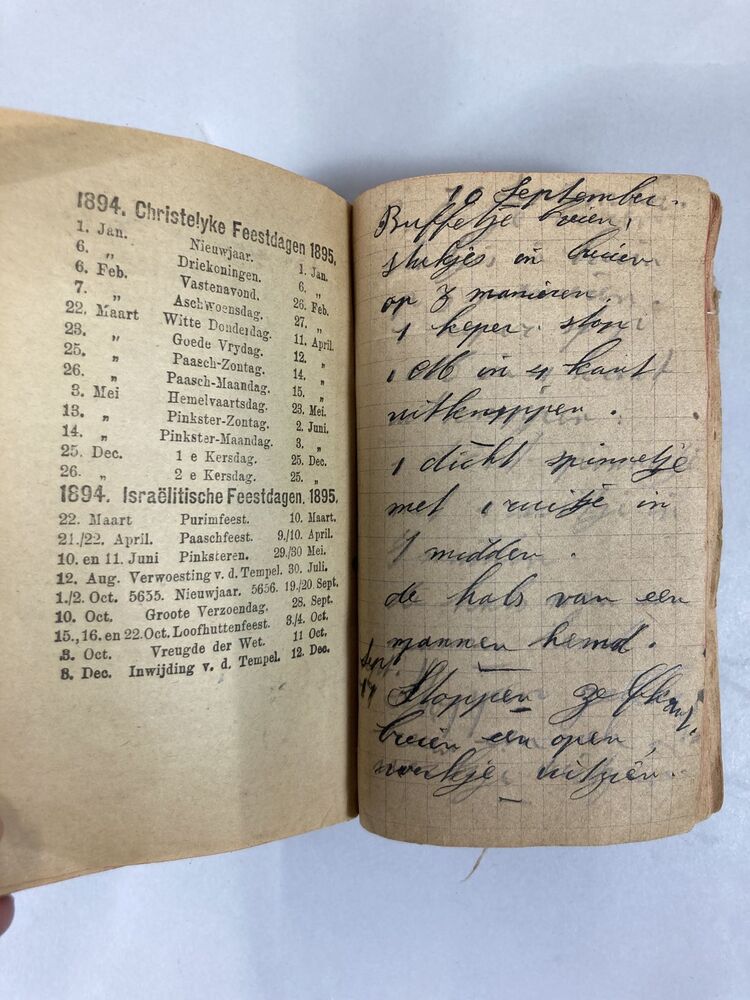 1894. Christelyke Feestdagen 1895.
1. Jan. Nieuwjaar. 1. Jan.
6. „ Driekoningen. 6. „
6. Feb. Vastenavond. 26. Feb.
7. „ Aschwoensdag. 27. „
22. Maart Witte Donderdag. 11. April.
23. „ Goede Vrydag. 12. „
25. „ Paasch-Zontag. 14. „
26. „ Paasch-Maandag. 15. „
3. Mei Hemelvaartsdag. 23. Mei.
13. „ Pinkster-Zontag. 2. Juni.
14. „ Pinkster-Maandag. 3. „
25. Dec. 1 e Kersdag. 25. Dec.
26. „ 2 e Kersdag. 25. „
1894. Israëlitische Feestdagen. 1895.
22. Maart Purimfeest. 10. Maart.
21./22. April. Paaschfeest. 9./10. April.
10. en 11. Juni Pinksteren. 29./30 Mei.
12. Aug. Verwoesting v. d. Tempel. 30. Juli.
1./2. Oct. 5655. Nieuwjaar. 5656. 19./20 Sept.
10. Oct. Groote Verzoendag. 28. Sept.
15., 16. en 22. Oct. Loofhuttenfeest. 3./4. Oct.
3. Oct. Vreugde der Wet. 11 Oct.
8. Dec. Inwijding v. d. Tempel. 12. Dec.
10 September.
Buffeltje breien,
stukjes in breien
op 3 manieren.
1 keper stop
1 in 4 kant
uitknippen.
1 dicht spinnetje
met 1 ruitje in
't midden.
de hals van een
mannen hemd.
Sept.
17 Stoppen
breien een open
uitzien.